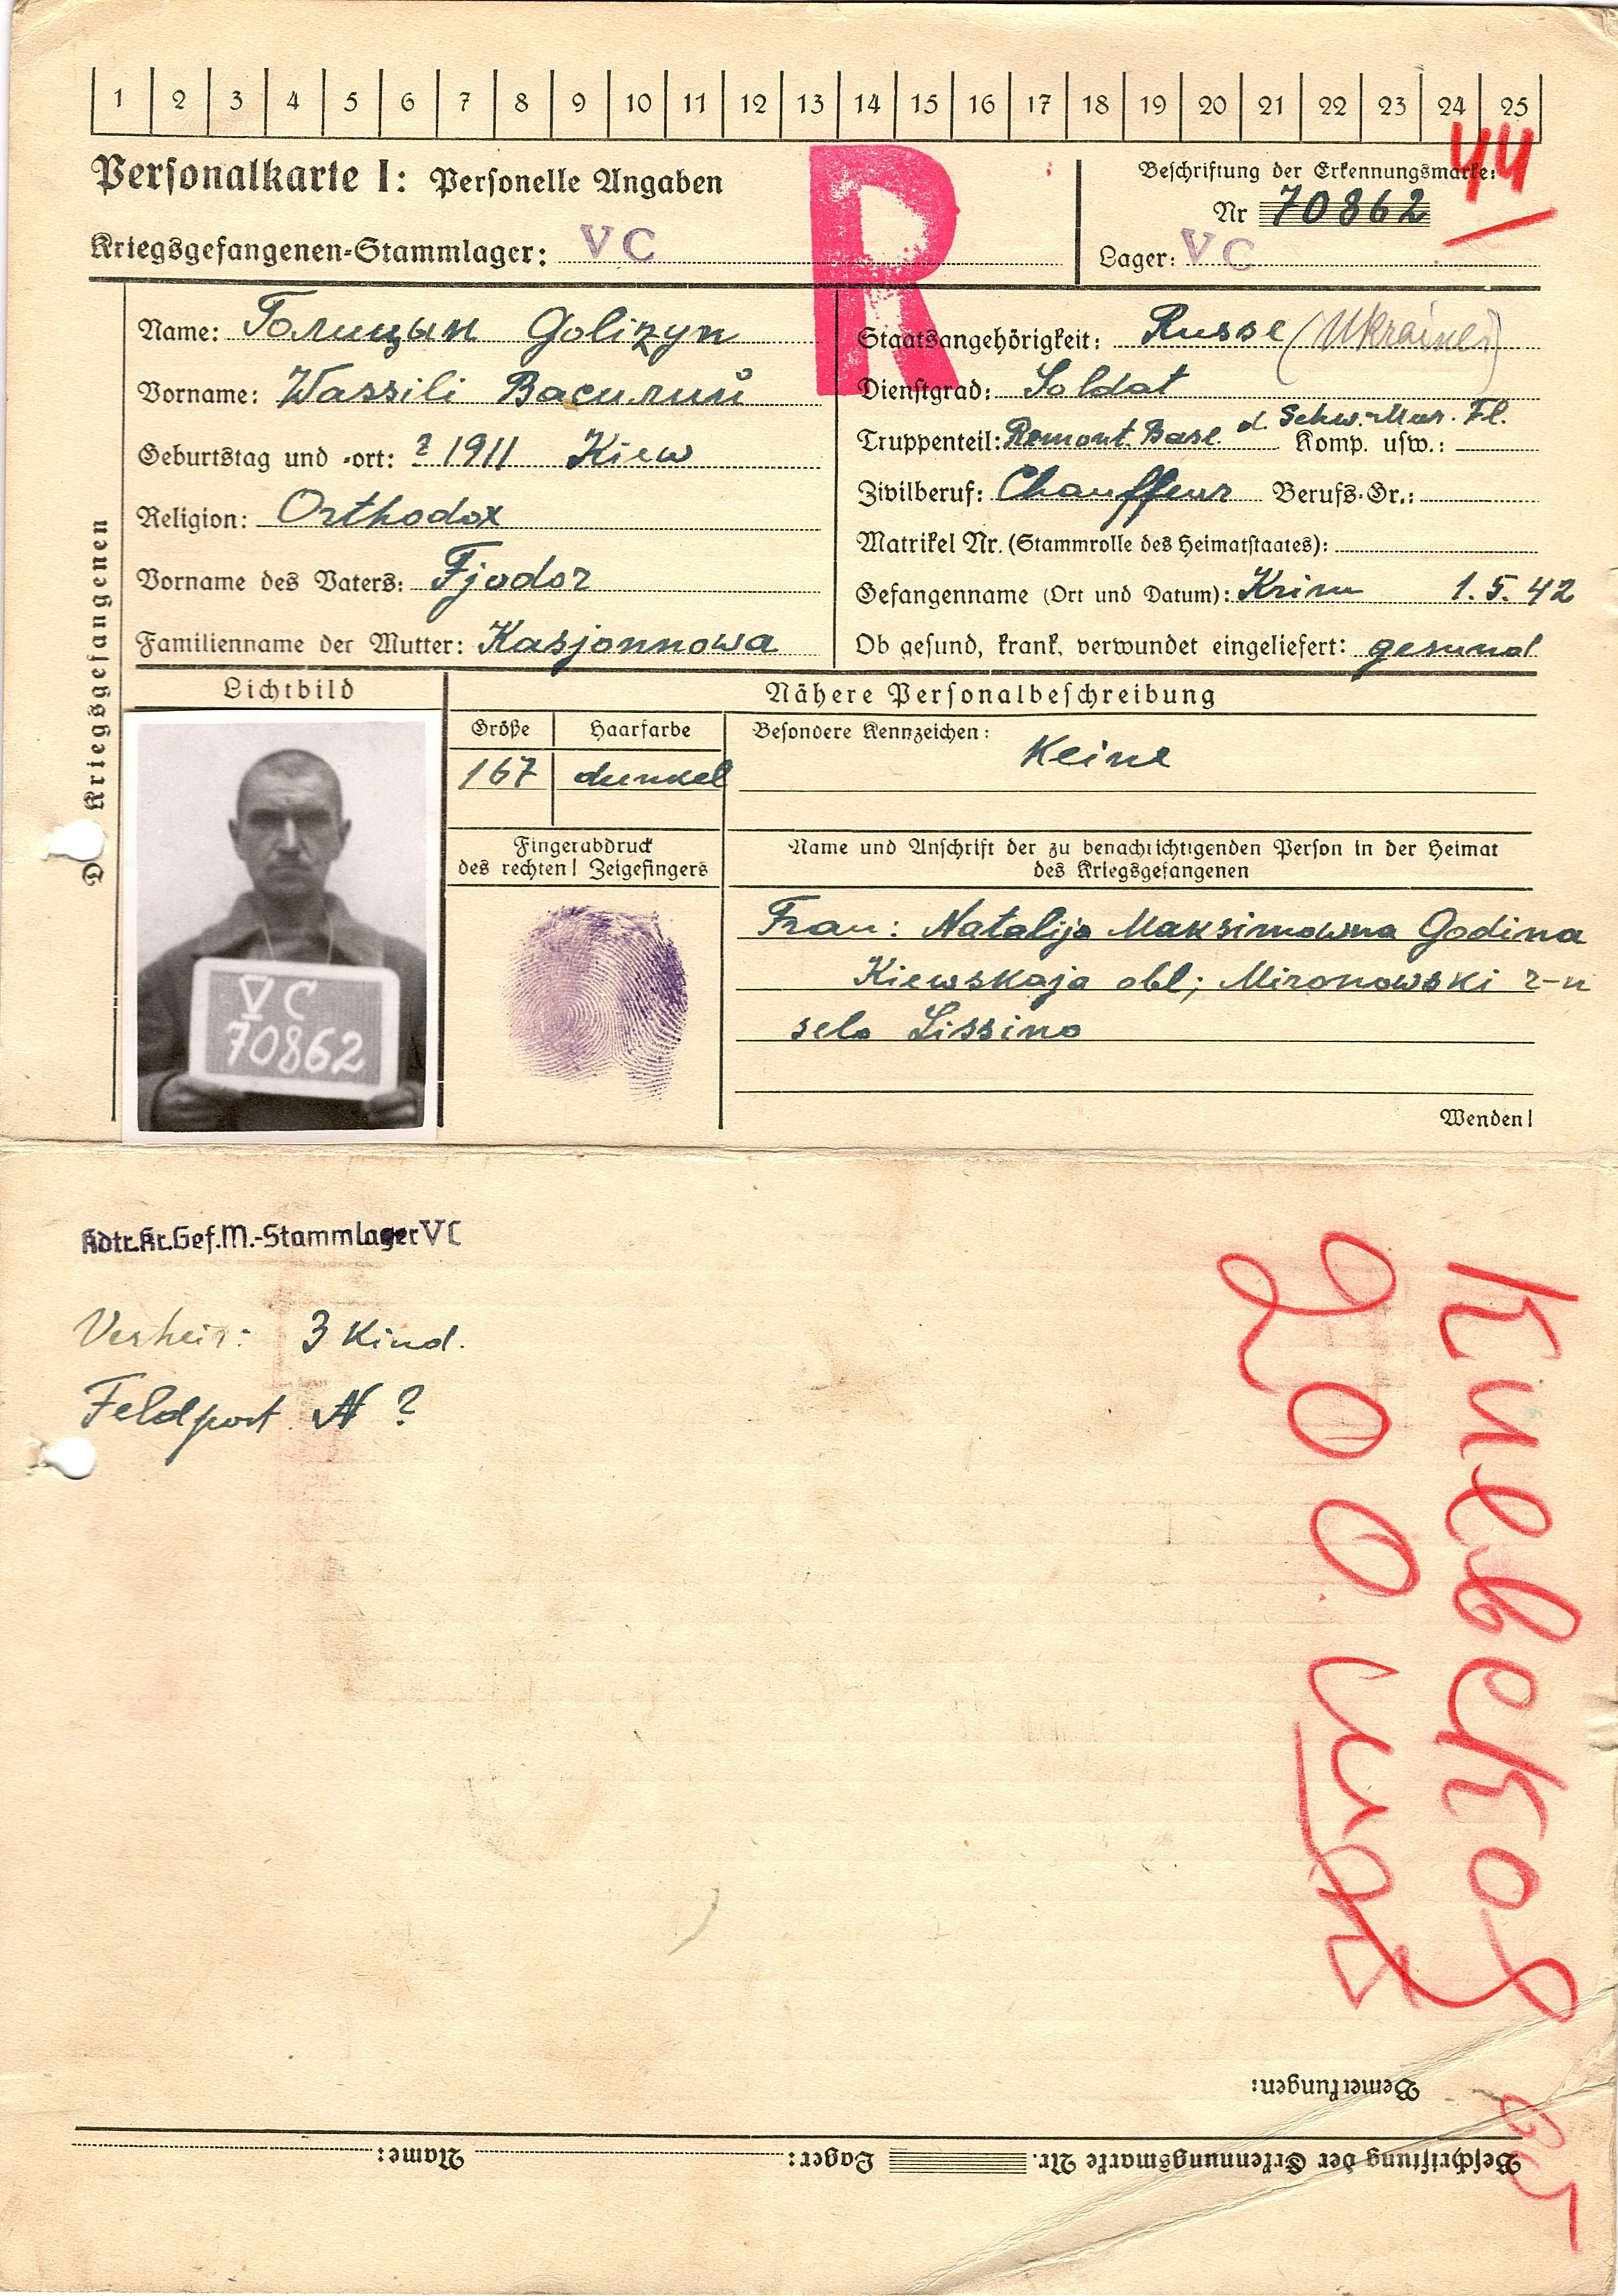 1 2 3 4 5 6 7 8 9 10 11 12 13 14 15 16 17 18 19 20 21 22 23 24 25
44
Personalkarte I: Personelle Angaben
Beschriftung der Erkennungsmarke:
Nr 70862
Kriegsgefangenen-Stammlager: V C
Lager: V C
R
Des Kriegsgefangenen
Name: Голицын Golizyn
Vorname: Wassili Василий
Geburtstag und -ort: ? 1911 Kiew
Religion: Orthodox
Vorname des Vaters: Fjodor
Familienname der Mutter: Kasjonnowa
Staatsangehörigkeit: Russe (Ukrainer)
Dienstgrad: Soldat
Truppenteil: Remont. Base d. Schw. Mar. Fl. Komp. usw.:
Zivilberuf: Chauffeur Berufs-Gr.:
Matrikel Nr. (Stammrolle des Heimatstaates):
Gefangenname (Ort und Datum): Krim 1.5.42
Ob gesund, krank, verwundet eingeliefert: gesund
Lichtbild
V C
70862
Nähere Personalbeschreibung
Größe Haarfarbe Besondere Kennzeichen:
167 dunkel Keine
Fingerabdruck
des rechten! Zeigefingers
Name und Anschrift der zu benachrichtigenden Person in der Heimat
des Kriegsgefangenen
Frau: Natalija Maksimowna Godina
Kiewskaja obl; Mironowski r-n
selo Lissino
Wenden!
Kdtr.Kr.Gef.M.-Stammlager V C
Verheir: 3 Kind.
Feldpost N ?
Киевской
Bemerkungen:
Beschriftung der Erkennungsmarke Nr. Lager: Name: